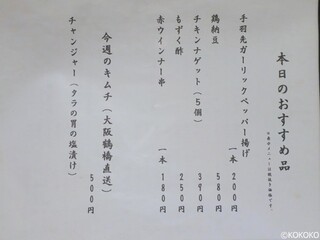 本日のおすすめ品
手羽先ガーリックペッパー揚げ 一本 200円
鶏納豆 580円
チキンナゲット(5個) 390円
もずく酢 250円
赤ウィンナー串 一本 180円
今週のキムチ(大阪鶴橋直送)
チャンジャー(タラの胃の塩漬け) 500円
©KOKOKO